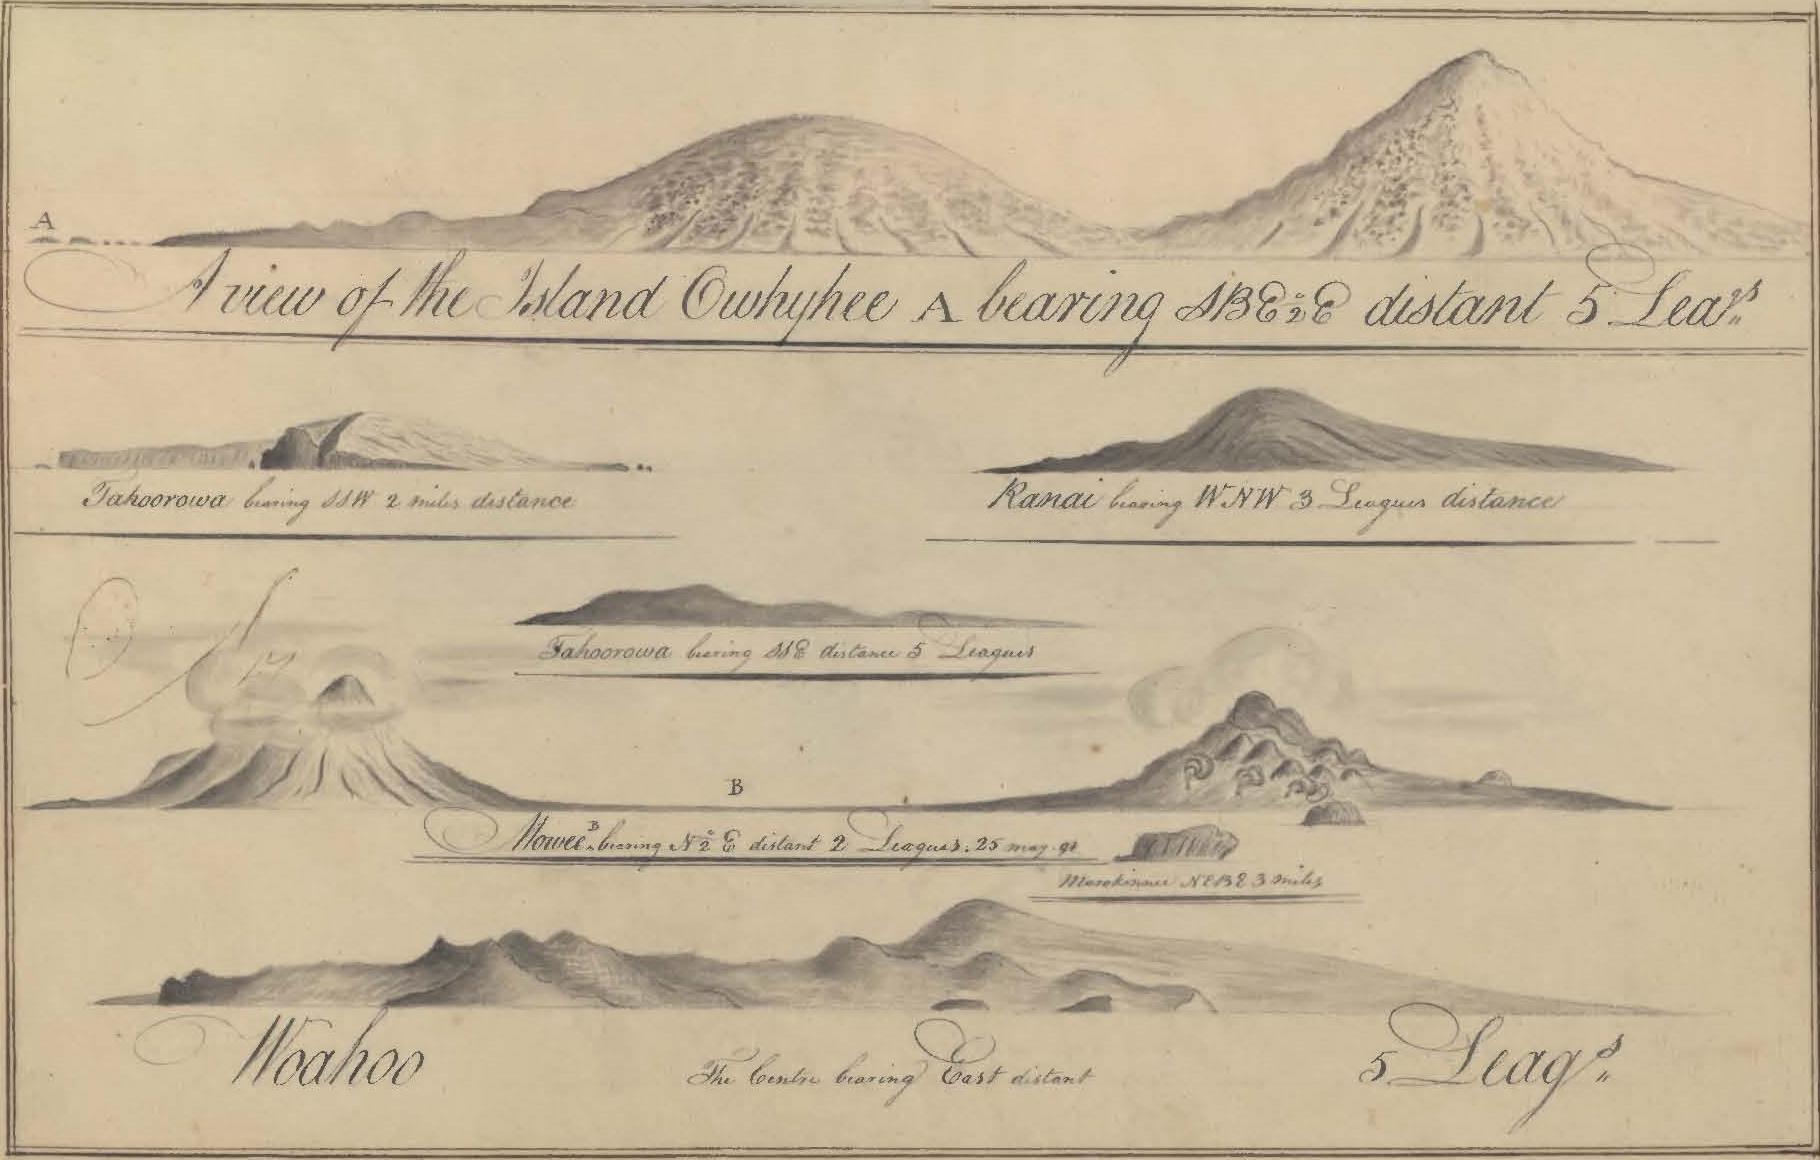 A
A view of the Island Owhyhee A bearing SBE½E distant 5 Leags
Tahoorowa bearing SSW 2 miles distance
Ranai bearing WNW 3 Leagues distance
Tahoorowa bearing SSE distance 5 Leagues
B
Mowee B bearing N½E distant 2 Leagues. 25 may. 91
Morokinnee NEBE 3 miles
Woahoo The Centre bearing East distant 5 Leags